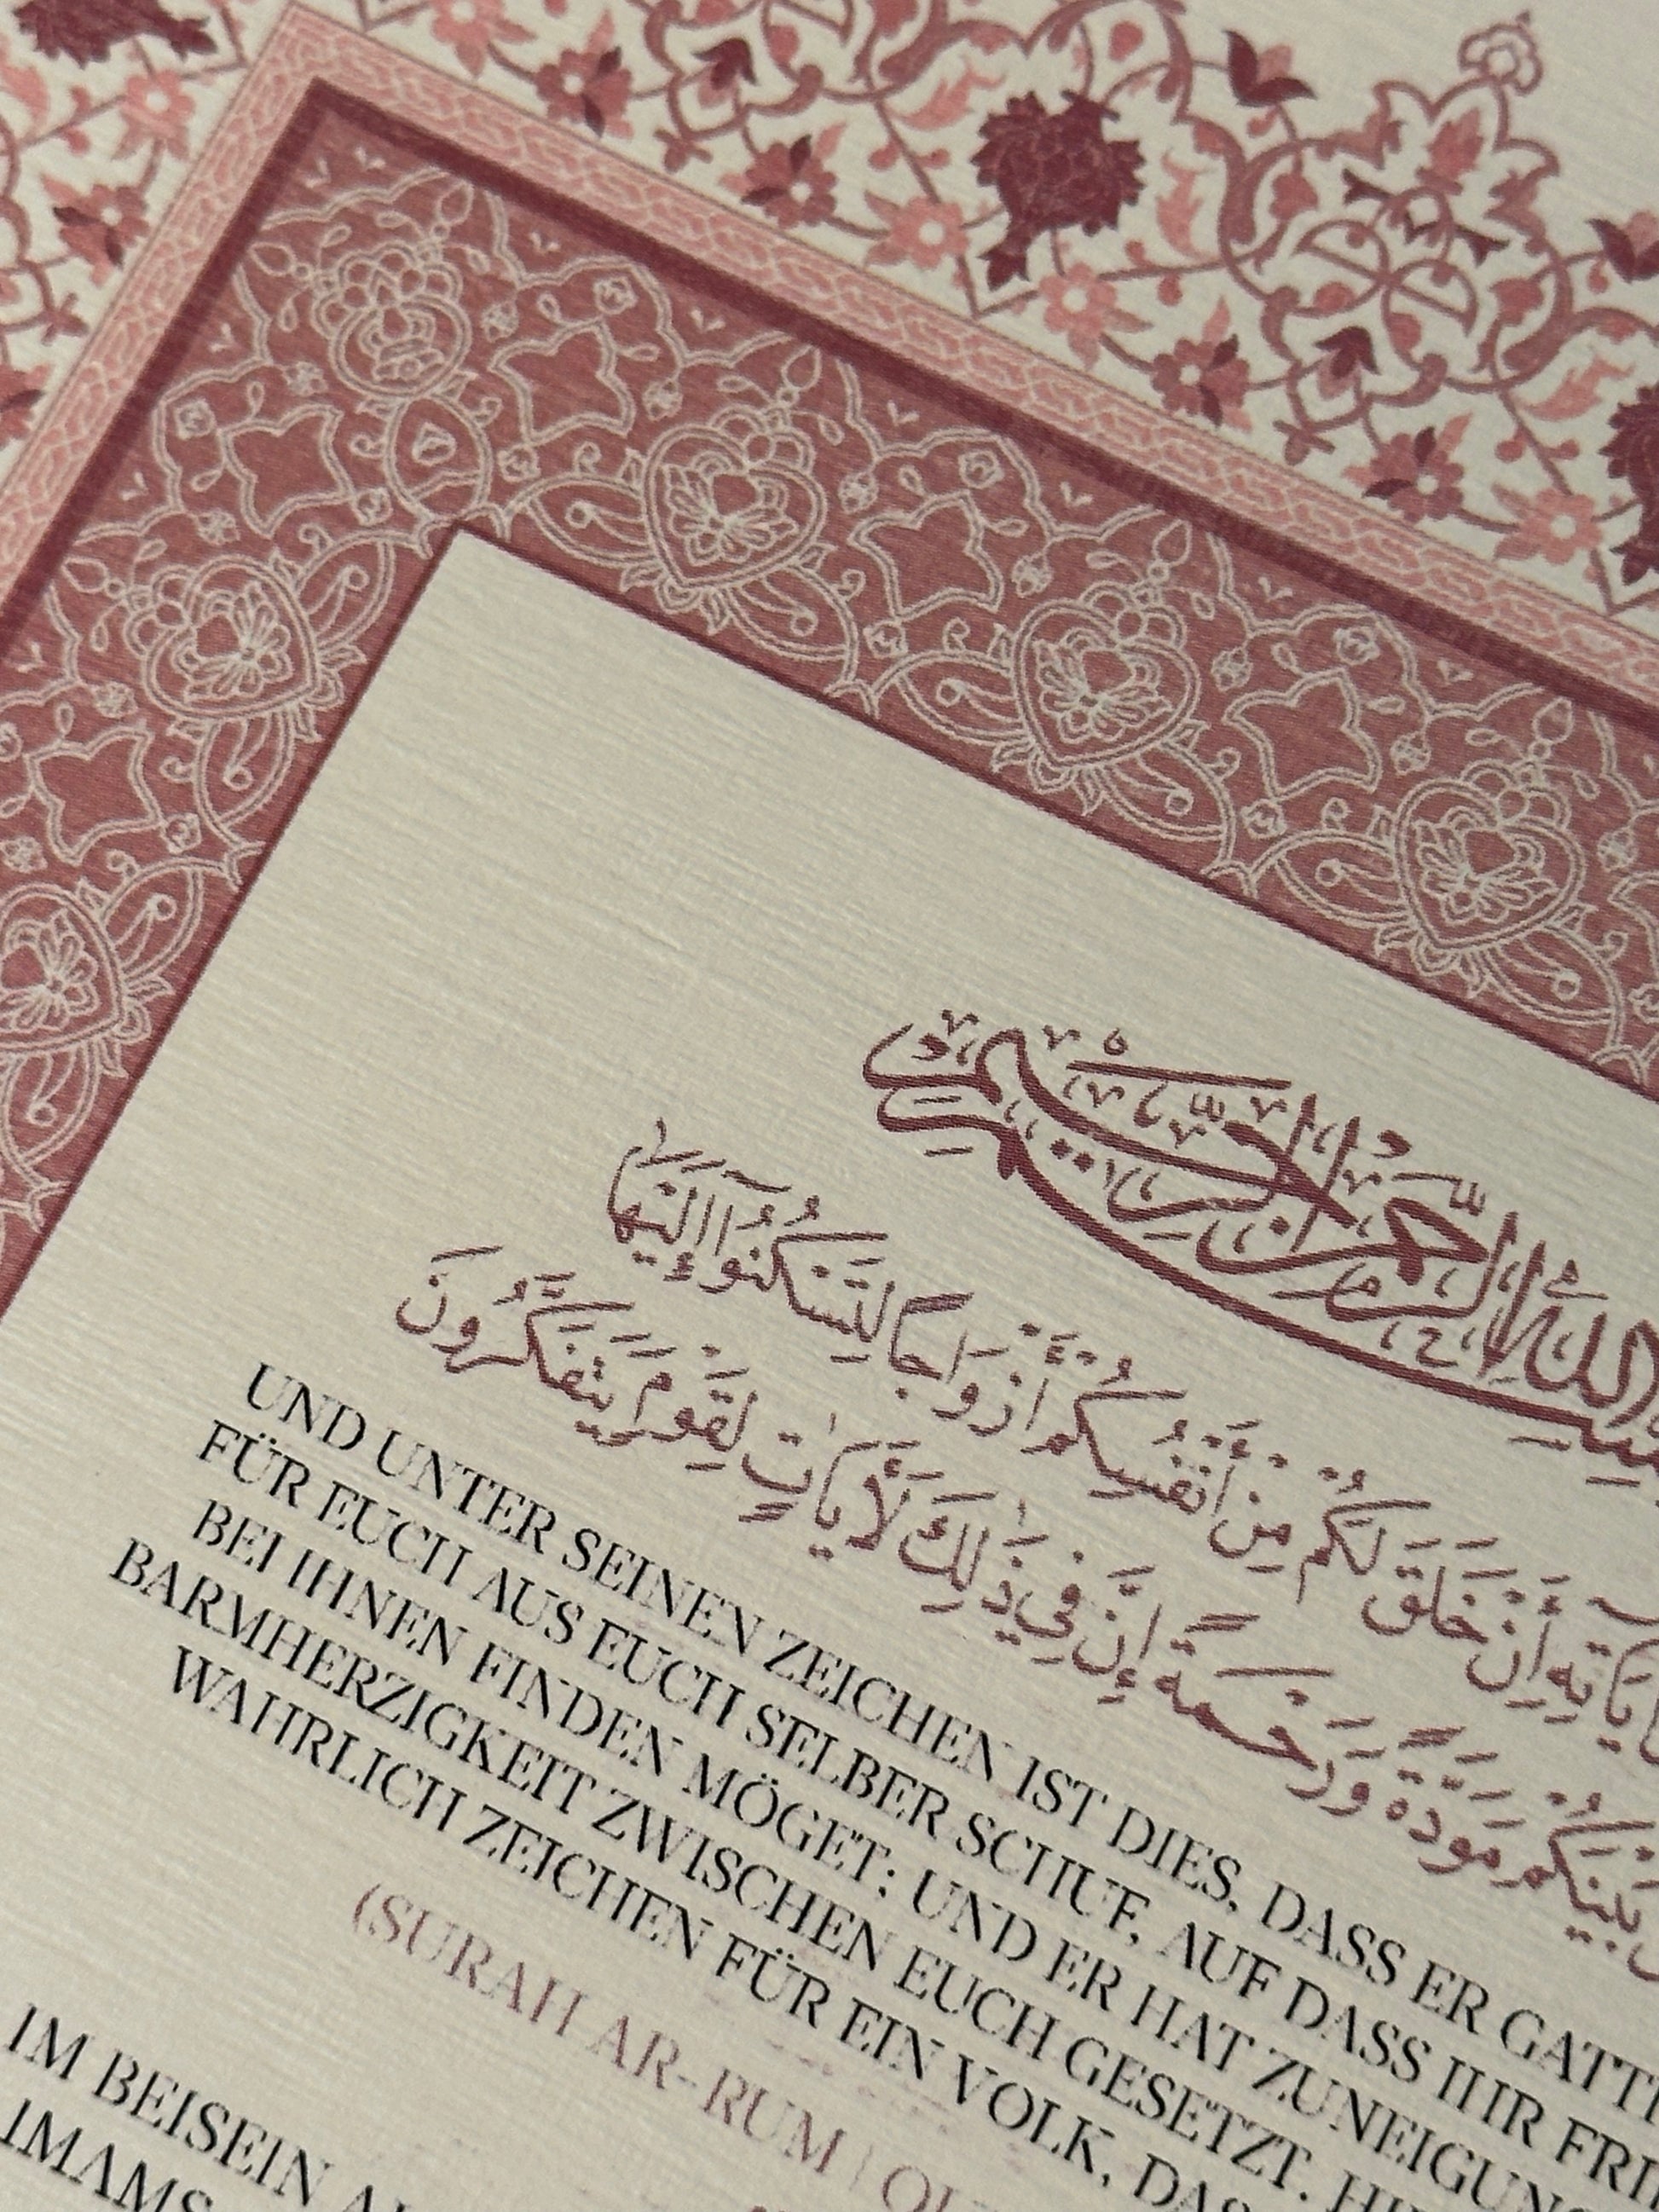 الله الرحمن الرحيم
آيَاتِهِ أَنْ خَلَقَ لَكُم مِّنْ أَنفُسِكُمْ أَزْوَاجًا لِّتَسْكُنُوا إِلَيْهَا
بَيْنَكُم مَّوَدَّةً وَرَحْمَةً إِنَّ فِي ذَٰلِكَ لَآيَاتٍ لِّقَوْمٍ يَتَفَكَّرُونَ
UND UNTER SEINEN ZEICHEN IST DIES, DASS ER
FÜR EUCH AUS EUCH SELBER SCHUF, AUF DASS IHR
BEI IHNEN FINDEN MÖGET; UND ER HAT
BARMHERZIGKEIT ZWISCHEN EUCH GESETZT.
WAHRLICH ZEICHEN FÜR EIN VOLK,
(SURAH AR-RUM |
IM BEISEIN
IMAMS